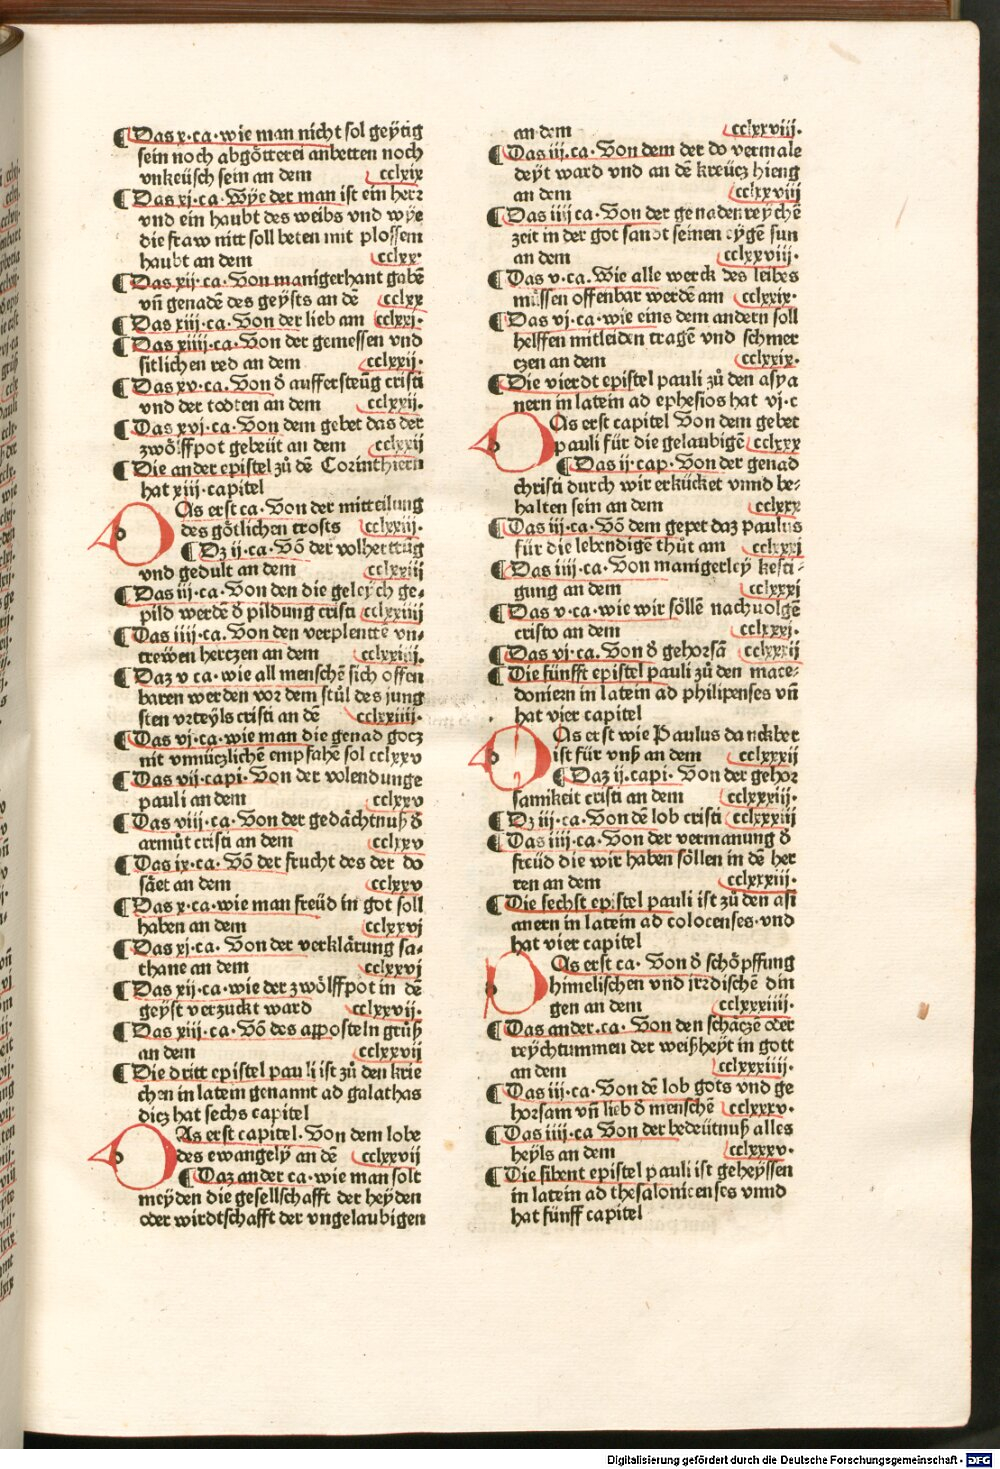 ¶ Das x·ca·wie man nicht sol geÿtig
sein noch abgötterei anbetten noch
vnkeüsch sein an dem cclxix
¶ Das xj·ca·Wÿe der man ist ein herr
vnd ein haubt des weibs vnd wÿe
die fraw nitt soll beten mit plossem
haubt an dem cclxx·
¶ Das xij·ca·Von manigerhant gabē
vn̄ genadē des geÿsts an dē cclxx
¶ Das xiii·ca·Von der lieb am cclxxj·
¶ Das xiiij·ca·Von der gemessen vnd
sitlichen red an dem cclxxij·
¶ Das xv·ca·Von d̄ auffersteūg cristi
vnd der todten an dem cclxxij·
¶ Das xvj·ca·Von dem gebet das der
zwölffpot gebeüt an dem cclxxij
¶ Die ander epistel zů dē Corinthiern
hat xiii·capitel
Das erst ca·Von der mitteilung
des götlichen trosts cclxxiij·
¶ Dz ij·ca·Vō der volherttūg
vnd gedult an dem cclxxiij
¶ Das iij·ca·Von den die geleych ge-
pild werdē d̄ pildung cristi cclxxiiij
¶ Das iiij·ca·Von den verplentē vn-
trewen herczen an dem cclxxiiij.
¶ Daz v ca·wie all menschē sich offen
baren werden vor dem stůl des jung
sten vrteyls cristi an dē cclxxiiij·
¶ Das vj·ca·wie man die genad gocz
nit vnnüczlichē empfahē sol cclxxv
¶ Das vij·capi·Von der volendunge
pauli an dem cclxxv
¶ Das viij·ca·Von der gedächtnuß d̄
armůt cristi an dem cclxxv
¶ Das ix·ca·Vō der frucht des der do
säet an dem cclxxv
¶ Das x·ca·wie man freüd in got soll
haben an dem cclxxvj
¶ Das xj·ca·Von der verklärung sa-
thane an dem cclxxvj
¶ Das xij·ca·wie der zwölffpot in dē
geÿst verzuckt ward cclxxvij·
¶ Das xiii·ca·Vō des apposteln grůß
an dem cclxxvij
¶ Die dritt epistel pauli ist zů den krie
chen in latein genannt ad galathas
dicz hat sechs capitel
Das erst capitel·Von dem lobe
des ewangelÿ an dē cclxxvij
¶ Daz ander ca·wie man solt
meyden die gesellschafft der heyden
oder wirdtschafft der vngelaubigen
an dem cclxxviij·
¶ Das iii·ca·Von dem der do vermale
deÿt ward vnd an dē kreücz hieng
an dem cclxxviij
¶ Das iiij ca·Von der genadenreÿchē
zeit in der got sandt seinen eÿgē sun
an dem cclxxviij·
¶ Das v·ca·Wie alle werck des leibes
müssen offenbar werdē am cclxxix·
¶ Das vj·ca·wie eins dem andern soll
helffen mitleiden tragē vnd schmer
czen an dem cclxxix·
¶ Die vierdt epistel pauli zů den asya
nern in latein ad ephesios hat vj·c
Das erst capitel Von dem gebet
pauli für die gelaubigē cclxxx
¶ Das ij·cap·Von der genad
christi durch wir erkücket vnnd be-
halten sein an dem cclxxx
¶ Das iij·ca·Vō dem gepet daz paulus
für die lebendigē thůt am cclxxxj
¶ Das iiij·ca·Von manigerley kesti-
gung an dem cclxxxj
¶ Das v·ca·wie wir söllē nachuolgē
cristo an dem cclxxxj·
¶ Das vj·ca·Von d̄ gehorsā cclxxxij
¶ Die fünfft epistel pauli zů den mace-
doniern in latein ad philipenses vn̄
hat vier capitel
Das erst wie Paulus danckber
ist für vnß an dem cclxxxij
¶ Daz ij.capi·Von der gehor
samkeit cristi an dem cclxxxiij·
¶ Dz iij·ca·Von dē lob cristi cclxxxiij
¶ Das iiij·ca·Von der vermanung d̄
freüd die wir haben söllen in dē her
ren an dem cclxxxiij·
¶ Die sechst epistel pauli ist zů den asi
anern in latein ad colocenses·vnd
hat vier capitel
Das erst ca·Von d̄ schöpffung
himelischen vnd irrdischē din
gen an dem cclxxxiiij·
¶ Das ander·ca·Von den schäczē oder
reÿchtummen der weißheÿt in gott
an dem cclxxxiiij·
¶ Das iii·ca·Von dē lob gots vnd ge
horsam vn̄ lieb d̄ menschē cclxxxv·
¶ Das iiij·ca Von der bedeütnuß alles
heyls an dem cclxxxv·
¶ Die sibent epistel pauli ist geheyssen
in latein ad thesalonicenses vnnd
hat fünff capitel
Digitalisierung gefördert durch die Deutsche Forschungsgemeinschaft - DFG